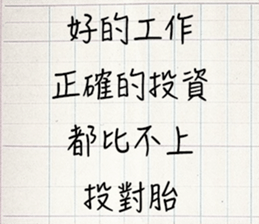 好的工作
正確的投資
都比不上
投對胎